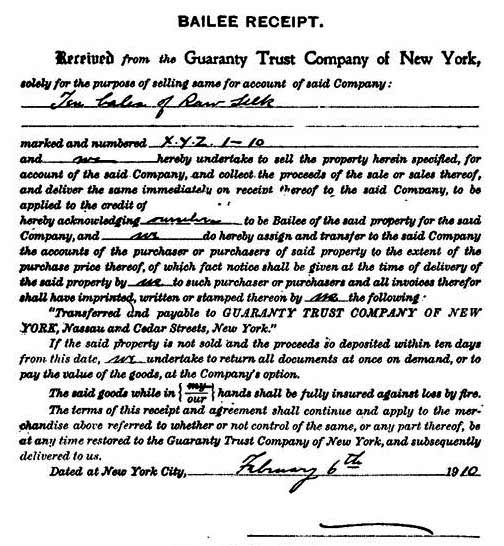 BAILEE RECEIPT.
Received from the Guaranty Trust Company of New York,
solely for the purpose of selling same for account of said Company:
Ten bales of Raw Silk
marked and numbered X.Y.Z. 1-10
and we hereby undertake to sell the property herein specified, for
account of the said Company, and collect the proceeds of the sale or sales thereof,
and deliver the same immediately on receipt thereof to the said Company, to be
applied to the credit of
hereby acknowledging ourselves to be Bailee of the said property for the said
Company, and we do hereby assign and transfer to the said Company
the accounts of the purchaser or purchasers of said property to the extent of the
purchase price thereof, of which fact notice shall be given at the time of delivery of
the said property by us to such purchaser or purchasers and all invoices therefor
shall have imprinted, written or stamped thereon by us the following:
"Transferred and payable to GUARANTY TRUST COMPANY OF NEW
YORK, Nassau and Cedar Streets, New York."
If the said property is not sold and the proceeds so deposited within ten days
from this date, we undertake to return all documents at once on demand, or to
pay the value of the goods, at the Company's option.
The said goods while in {my/our} hands shall be fully insured against loss by fire.
The terms of this receipt and agreement shall continue and apply to the mer-
chandise above referred to whether or not control of the same, or any part thereof, be
at any time restored to the Guaranty Trust Company of New York, and subsequently
delivered to us.
Dated at New York City, February 6th 1910